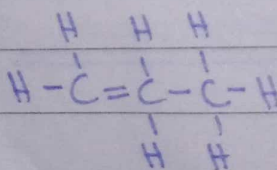 H H H
H-C=C-C-H
H H